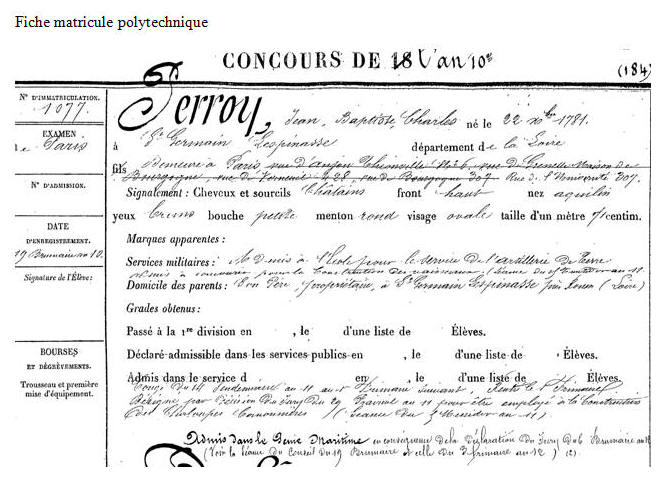 Fiche matricule polytechnique
CONCOURS DE 18 l'an 10e
(184)
N° D'IMMATRICULATION.
1077.
EXAMEN
de Paris
N° D'ADMISSION.
DATE
D'ENREGISTREMENT.
19 Brumaire an 10.
Signature de l'Élève:
BOURSES
ET DÉGRÈVEMENTS.
Trousseau et première
mise d'équipement.
Perroy, Jean Baptiste Charles né le 22 1781.
à St Germain Lespinasse département de la Loire
fils Demeure à Paris, rue d'anjou Thionville N° 6, rue de Grenelle Maison de
Bourgogne, rue de Verneuil 428, rue de Bourgogne 307 Rue de l'Université 307.
Signalement : Cheveux et sourcils Chatains front haut nez aquilin
yeux bruns bouche petite menton rond visage ovale taille d'un mètre 71 centim.
Marques apparentes :
Services militaires : Admis à l'École pour le service de l'artillerie de Terre
admis à concourir pour la Construction des vaisseaux. Séance du an 11.
Domicile des parents : Son Père, propriétaire, à St Germain Lespinasse près (Loire)
Grades obtenus :
Passé à la 1re division en , le d'une liste de Élèves.
Déclaré admissible dans les services publics en , le d'une liste de Élèves.
Admis dans le service d en , le d'une liste de Élèves.
Congé du 14 Vendémiaire an 11 au 1 Frimaire suivant, Rentré le 1 Frimaire
Désigné par Décision du Jury du 29 an 11 pour être employé à la Construction
des Chaloupes Canonnières (Séance du 5 an 11).
Admis dans le Génie Maritime en conséquence de la Déclaration du Jury du 6 Brumaire an 12
(Voir la séance du Conseil du 19 Brumaire et celle du 3 frimaire an 12) (2)